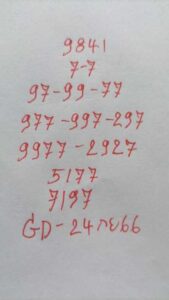 9841
7-7
97-99-77
977-997-297
9977-2927
5177
7197